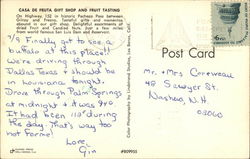 CASA DE FRUTA GIFT SHOP AND FRUIT TASTING
On Highway 152 in historic Pacheco Pass between
Gilroy and Fresno. Tasteful gifts and momentos
abound in our gift shop. Delightful assortments of
dried Fruit and Candied Nuts. Just a few miles
from world famous San Luis Dam and Reservoir.
I finally got to see a
buffalo at this place!!
We're driving through
Dallas Texas & should be
in Louisiana tonight.
Drove through Palm Springs
at midnight & it was 94°.
It had been 110° during
the day. That's way too
hot for me!
Love,
Gin
Color Photography by
Post Card
Mr. + Mrs Corriveau
45 Sawyer St.
Nashua, N.H.
03060